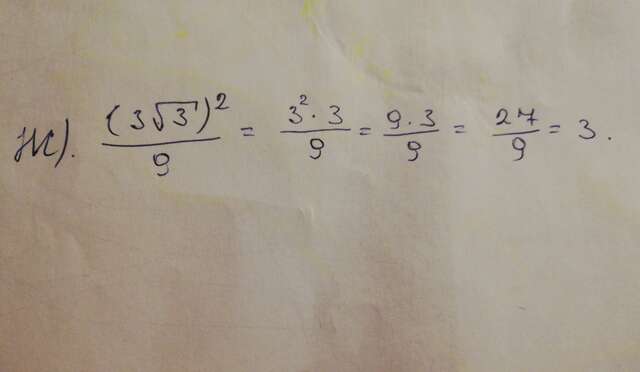 ж). (3√3)²/9 = 3²·3/9 = 9·3/9 = 27/9 = 3.